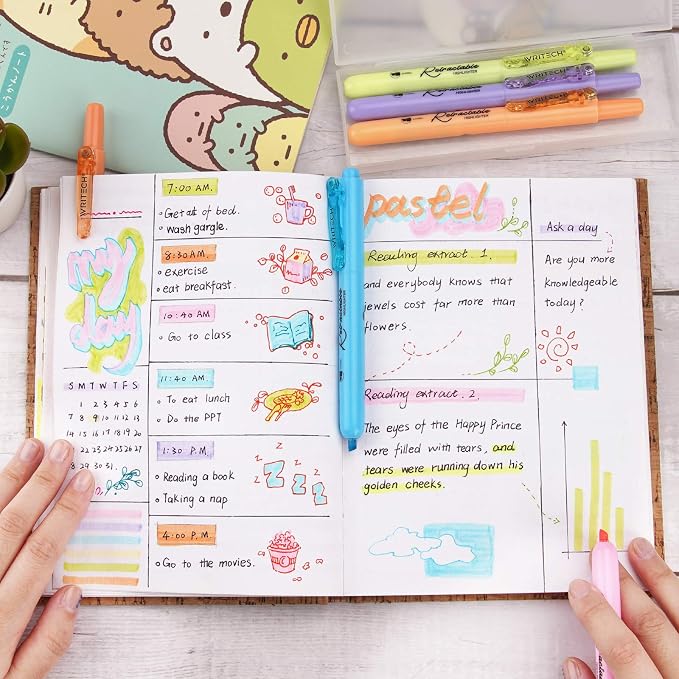 こうかんノート
WRITECH
Retractable
HIGHLIGHTER
WRITECH
Retractable
HIGHLIGHTER
Retractable
HIGHLIGHTER
WRITECH
my
day
S M T W T F S
1 2 3 4 5 6
7 8 9 10 11 12 13
14 15 16 17 18 19 20
22 23 24 25 26 27
29 30 31
7:00 AM.
Get out of bed.
wash gargle.
8:30 AM.
exercise
eat breakfast.
10:40 AM
Go to class
11:40 AM
To eat lunch
Do the PPT
1:30 P.M.
Reading a book
Taking a nap
z z z
Z Z Z
4:00 P.M.
Go to the movies.
Retractable
HIGHLIGHTER
pastel
Reading extract. 1.
and everybody knows that
jewels cost far more than
flowers.
Reading extract. 2.
The eyes of the Happy Prince
were filled with tears, and
tears were running down his
golden cheeks.
Ask a day
Are you more
knowledgeable
today?